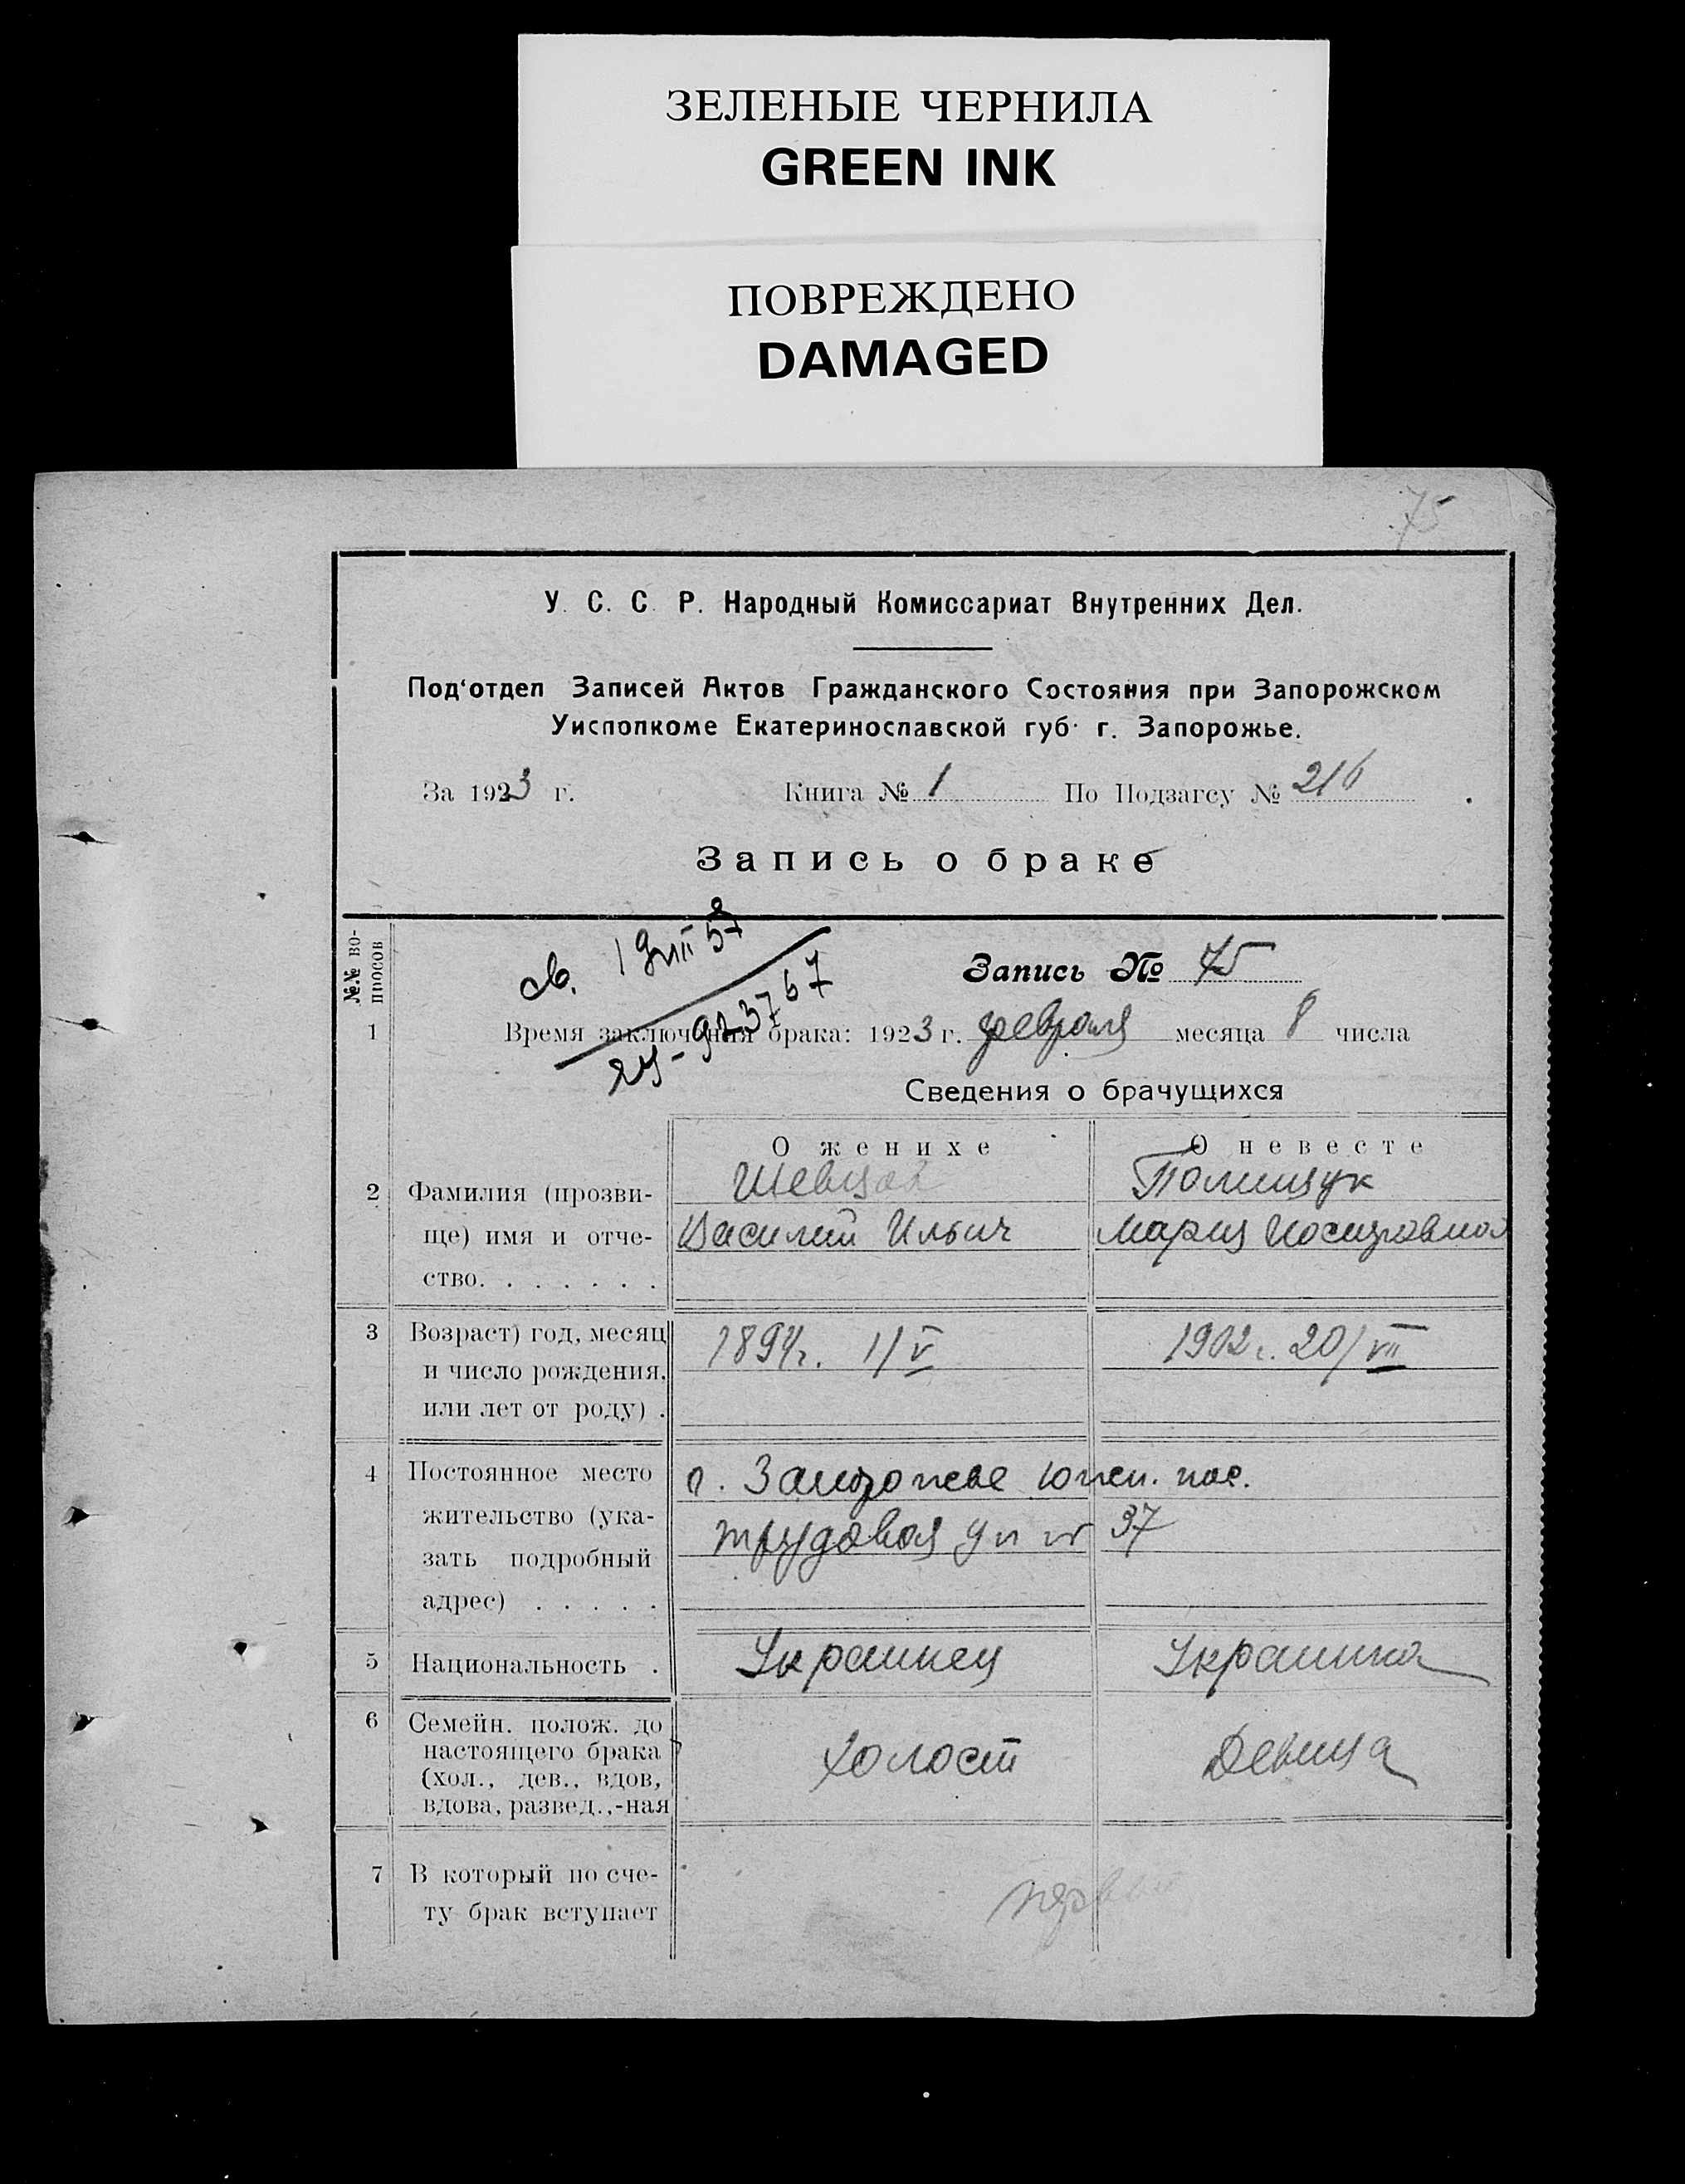 ЗЕЛЕНЫЕ ЧЕРНИЛА
GREEN INK
ПОВРЕЖДЕНО
DAMAGED
75
У. С. С. Р. Народный Комиссариат Внутренних Дел.
Под‘отдел Записей Актов Гражданского Состояния при Запорожском
Уисполкоме Екатеринославской губ. г. Запорожье.
За 1923 г. Книга № 1 По Подзагсу № 216
Запись о браке
№.№ во-
просов
Запись № 75
1 Время заключения брака: 1923 г. февраля месяца 8 числа
Сведения о брачущихся
О женихе О невесте
2 Фамилия (прозви- Полищук
ще) имя и отче- Василий Ильич Мария Иосифовна
ство. . . . . . .
3 Возраст) год, месяц 1894г. 1/V 1902г. 20/VII
и число рождения,
или лет от роду) .
4 Постоянное место г. Запорожье южн. пос.
жительство (ука- Трудовая ул № 37
зать подробный
адрес) . . . . .
5 Национальность . Украинец Украинка
6 Семейн. полож. до
настоящего брака Холост Девица
(хол., дев., вдов,
вдова, развед.,-ная
7 В который по сче-
ту брак вступает первый